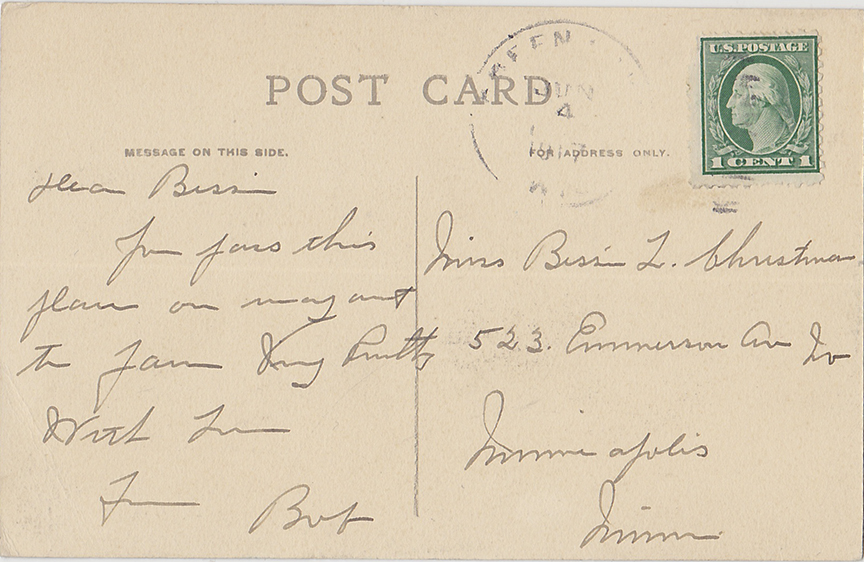 POST CARD
U.S. POSTAGE
1 CENT 1
JUN
4
MESSAGE ON THIS SIDE.
FOR ADDRESS ONLY.
Dear Bessie
You pass this
place on way out
to farm Very Pretty
With Love
From
Bob
Miss Bessie L. Christman
523. Emmerson Av No
Minneapolis
Minn